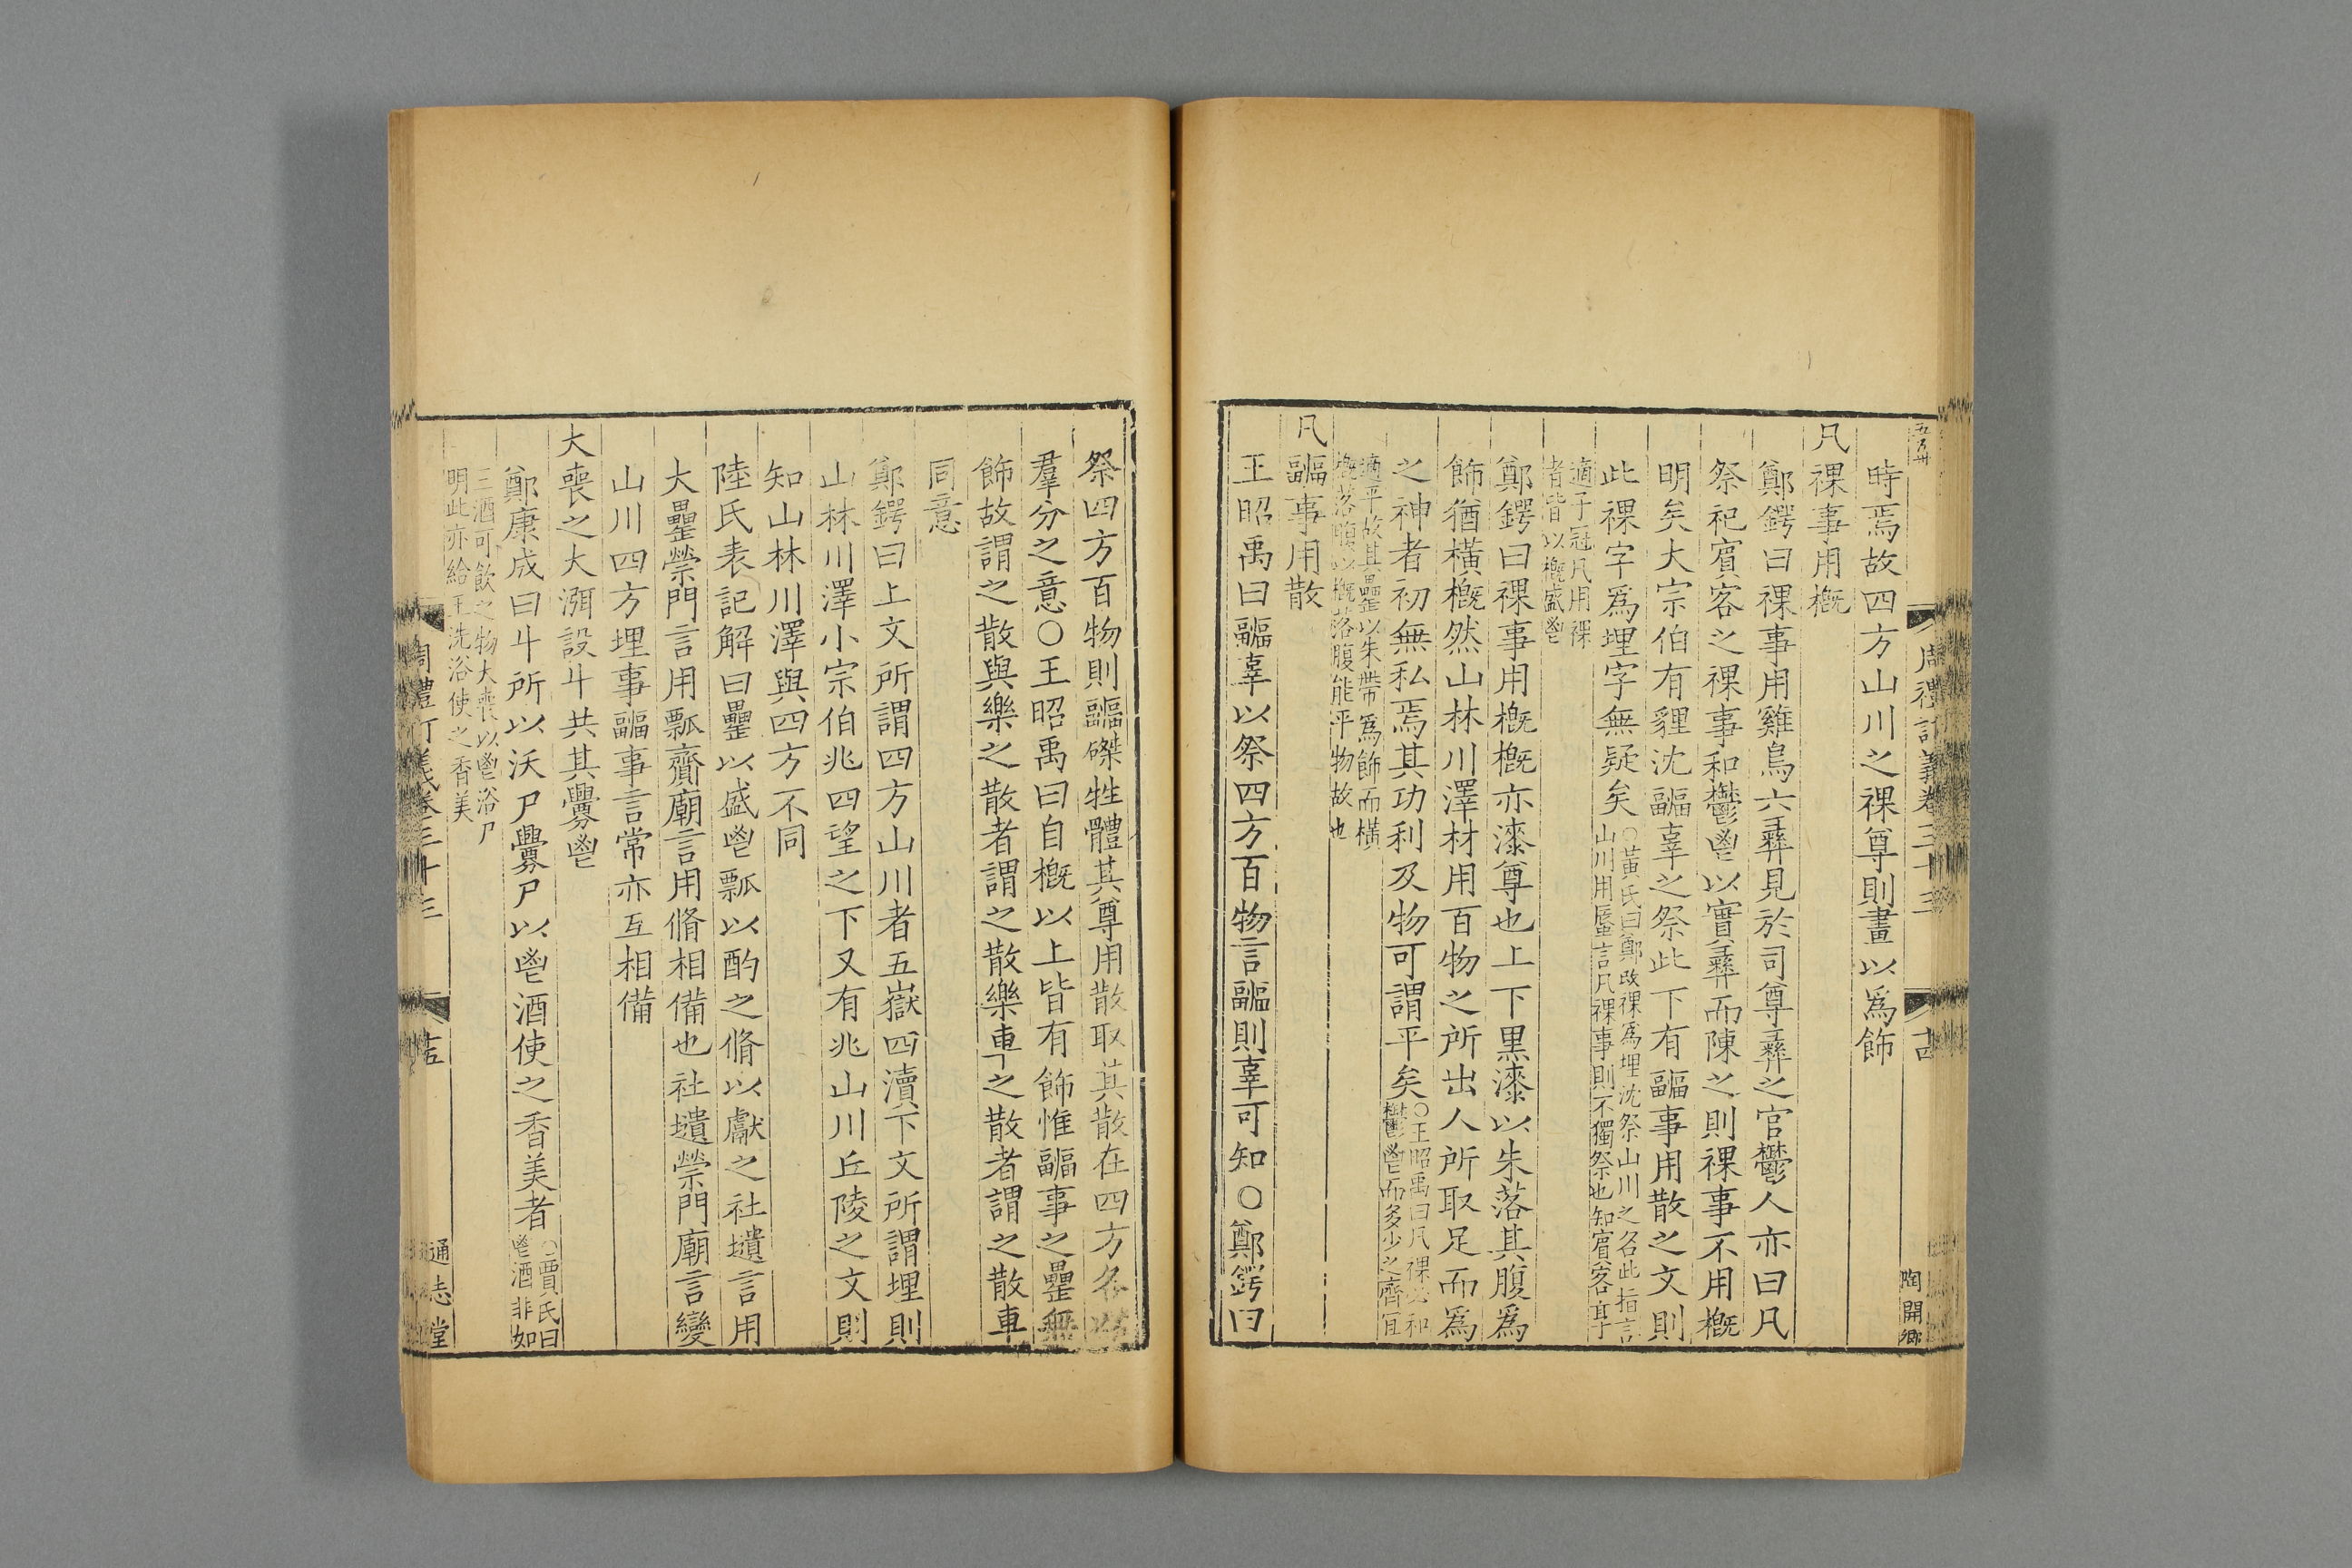 時焉故四方山川之祼尊則畫以爲飾
凡祼事用概
鄭鍔曰祼事用雞鳥六彝見於司尊彝之官鬱人亦曰凡
祭祀賓客之祼事和鬱鬯以實彝而陳之則祼事不用概
明矣大宗伯有貍沈疈辜之祭此下有疈事用散之文則
此祼字爲埋字無疑矣
○黃氏曰鄭改祼爲埋沈祭山川之名此指言
山川用蜃言凡祼事則不獨祭也知賓客享
適子冠凡用祼
者皆以概盛鬯
鄭鍔曰祼事用概概亦漆尊也上下黑漆以朱落其腹爲
飾猶橫概然山林川澤材用百物之所出人所取足而爲
之神者初無私焉其功利及物可謂平矣
○王昭禹曰凡祼必和
鬱鬯而多少之齊宜
適平故其罍以朱帶爲飾而橫
概落腹以概落腹能平物故也
凡疈事用散
王昭禹曰疈辜以祭四方百物言疈則辜可知○鄭鍔曰
周禮訂義卷三十三
陶開鄉
祭四方百物則疈磔牲體其尊用散取其散在四方各
羣分之意○王昭禹曰自概以上皆有飾惟疈事之罍無
飾故謂之散與樂之散者謂之散樂車之散者謂之散車
同意
鄭鍔曰上文所謂四方山川者五嶽四瀆下文所謂埋則
山林川澤小宗伯兆四望之下又有兆山川丘陵之文則
知山林川澤與四方不同
陸氏表記解曰罍以盛鬯瓢以酌之脩以獻之社壝言用
大罍禜門言用瓢齎廟言用脩相備也社壝禜門廟言變
山川四方埋事疈事言常亦互相備
大喪之大渳設斗共其釁鬯
鄭康成曰斗所以沃尸釁尸以鬯酒使之香美者
○賈氏曰
鬯酒非如
三酒可飲之物大喪以鬯浴尸
明此亦給王洗浴使之香美
周禮訂義卷三十三
通志堂